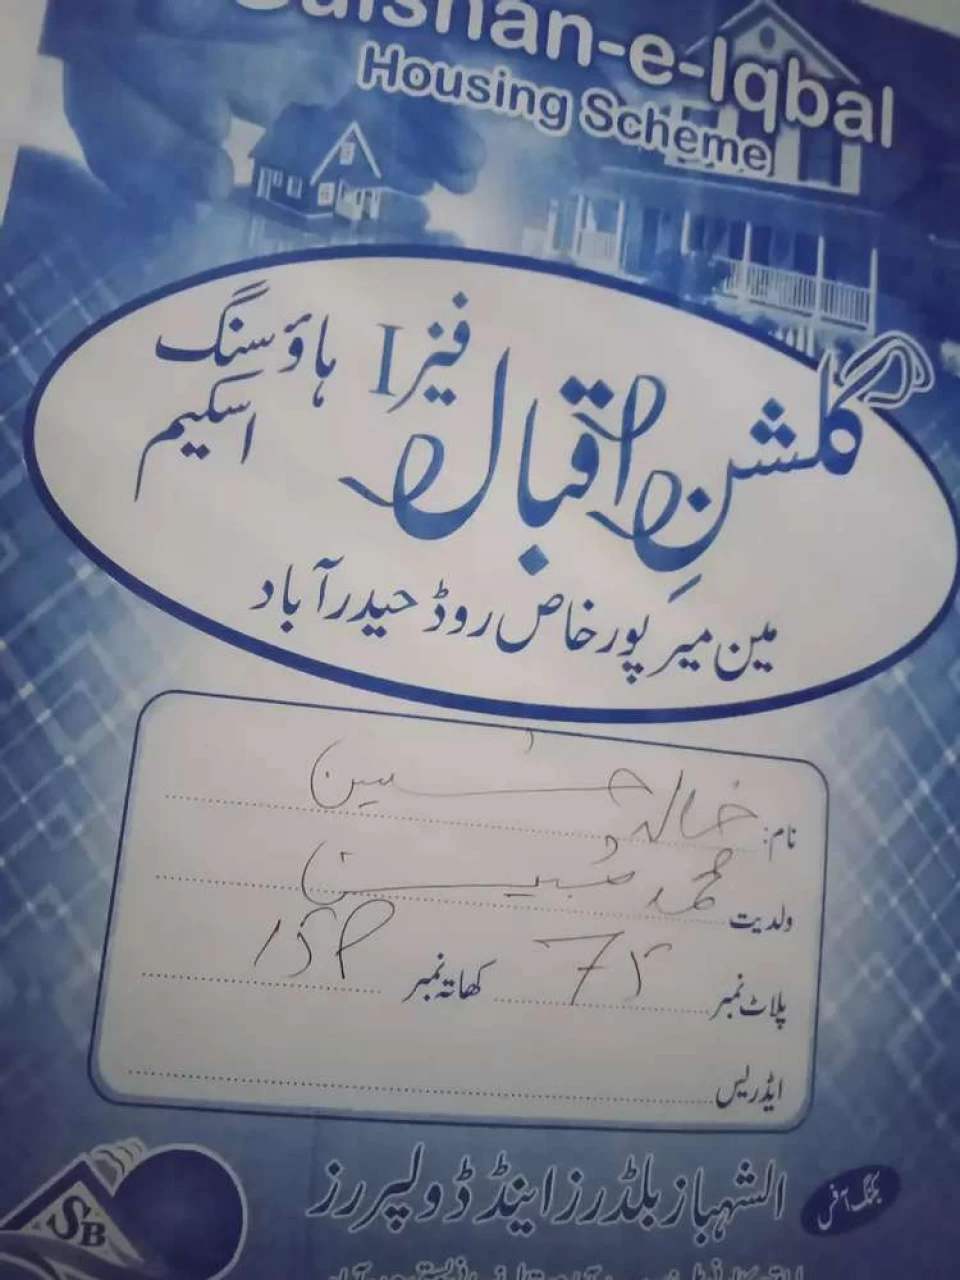 Gulshan-e-Iqbal
Housing Scheme
گلشنِ اقبال فیز I ہاؤسنگ اسکیم
مین میر پور خاص روڈ حیدرآباد
نام: خالد حسین
ولدیت محمد حسین
پلاٹ نمبر 75 کھاتہ نمبر
ایڈریس
بکنگ آفس
الشہباز بلڈرز اینڈ ڈولپررز
SB